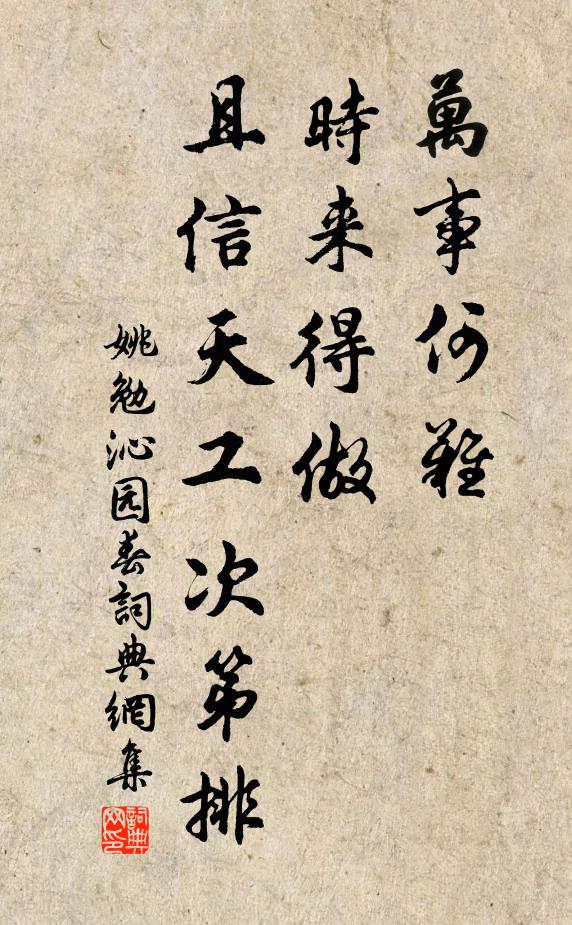 萬事何難
時来得做
且信天工次第排
姚勉沁园春詞典網集
詞典网印